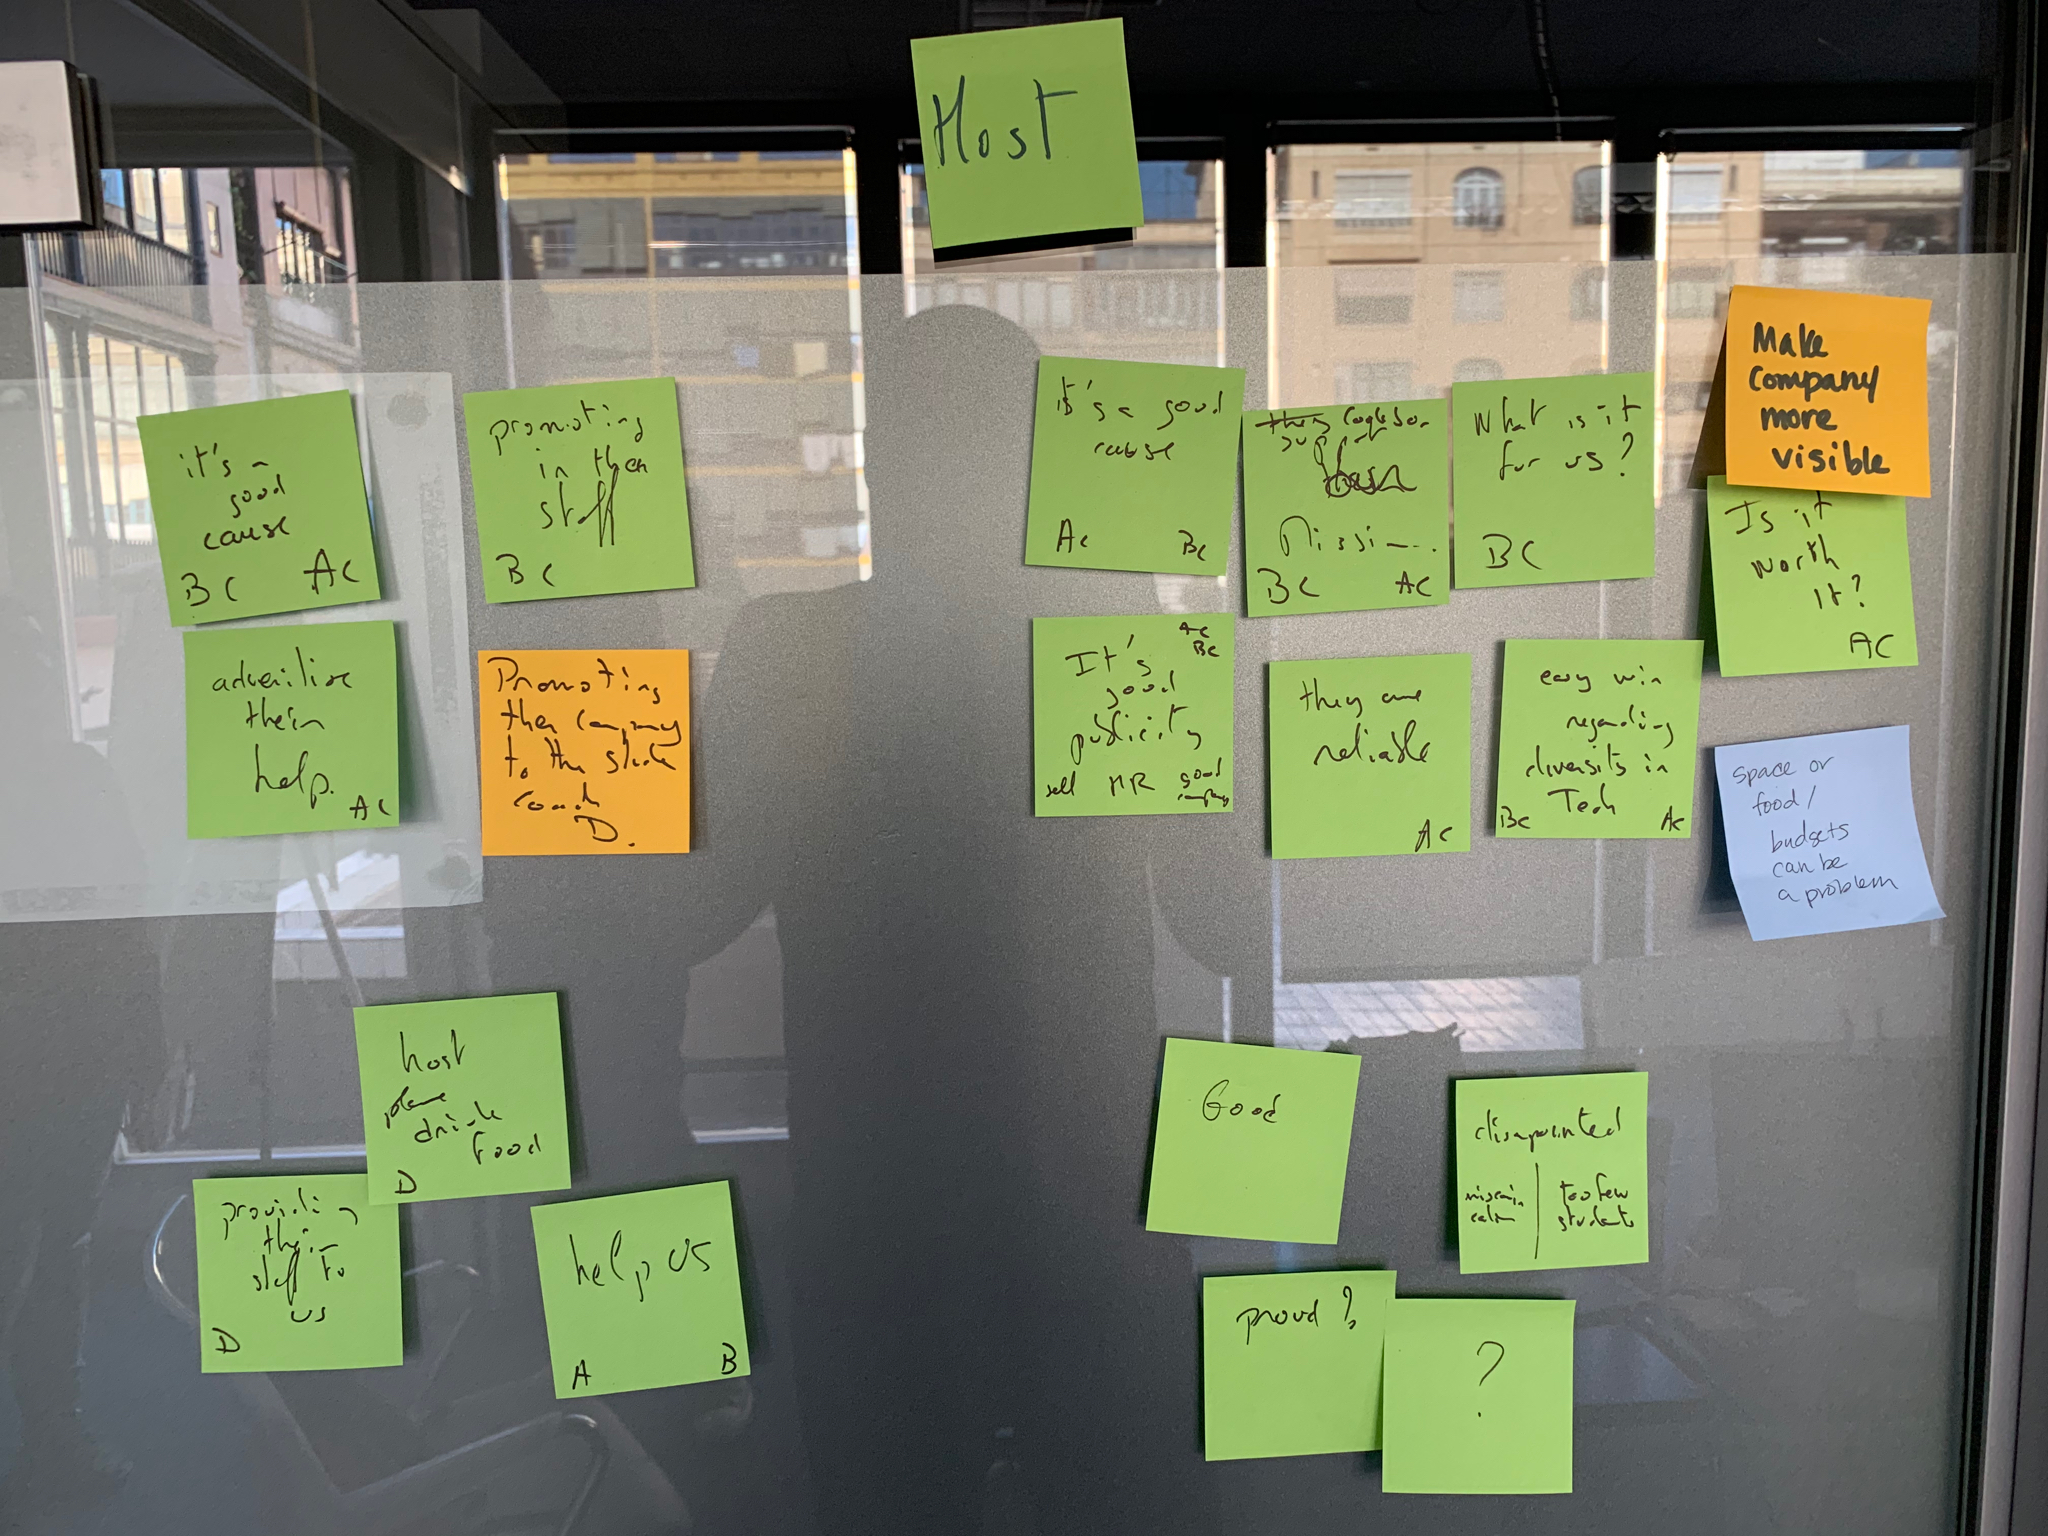 Host
it's a
good
cause
BC AC
promoting
in then
staff
BC
advertise
their
help.
AC
Promoting
then company
to the
D.
it's a good
cause
AC BC
support
Mission..
BC AC
What is it
for us?
BC
Make
Company
more
visible
Is it
worth
it?
AC
AC
BC
It's
good
publicity
sell HR good
they are
reliable
AC
easy win
regarding
diversits in
Tech
BC AC
space or
food /
budgets
can be
a problem
host
drink
food
D
providing
their
staff to
us
D
help us
A B
Good
disapointed
too few
students
proud ?
?